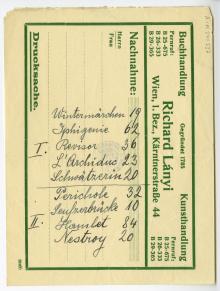 Buchhandlung
Gegründet 1785
Kunsthandlung
Fernruf:
B 25-675
B 26-333
B 29-365
Richard Lányi
Wien, I. Bez., Kärntnerstraße 44
Fernruf:
B 25-675
B 26-333
B 29-365
Nachnahme:
Herrn
Frau
Drucksache.
Wintermärchen 19
Iphigenie 62
I. Revisor 36
L'Archiduc 23
Schwätzerin 20
Perichole 32
Seufzerbrücke 10
II Hamlet 84
Nestroy 20